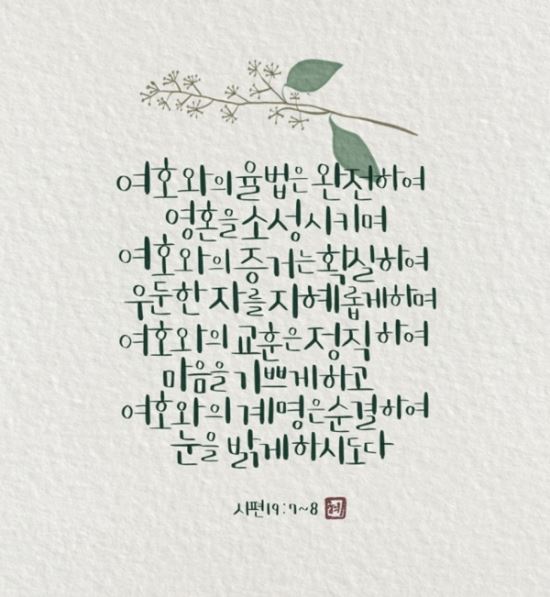 여호와의 율법은 완전하여
영혼을 소성시키며
여호와의 증거는 확실하여
우둔한 자를 지혜롭게하며
여호와의 교훈은 정직하여
마음을 기쁘게하고
여호와의 계명은 순결하여
눈을 밝게하시도다
시편19:7~8 혜